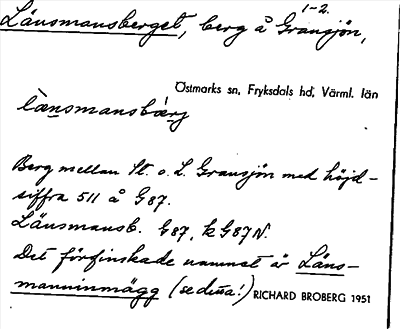 1-2.
Länsmansberget, berg å Gransjön,
Östmarks sn, Fryksdals hd, Värml. län
Berg mellan St. o. L. Gransjön med höjd-
siffra 511 å G87.
Länsmansb. G87, k G87N.
Det förfinskade namnet är Läns-
manninmägg (se detta!) RICHARD BROBERG 1951